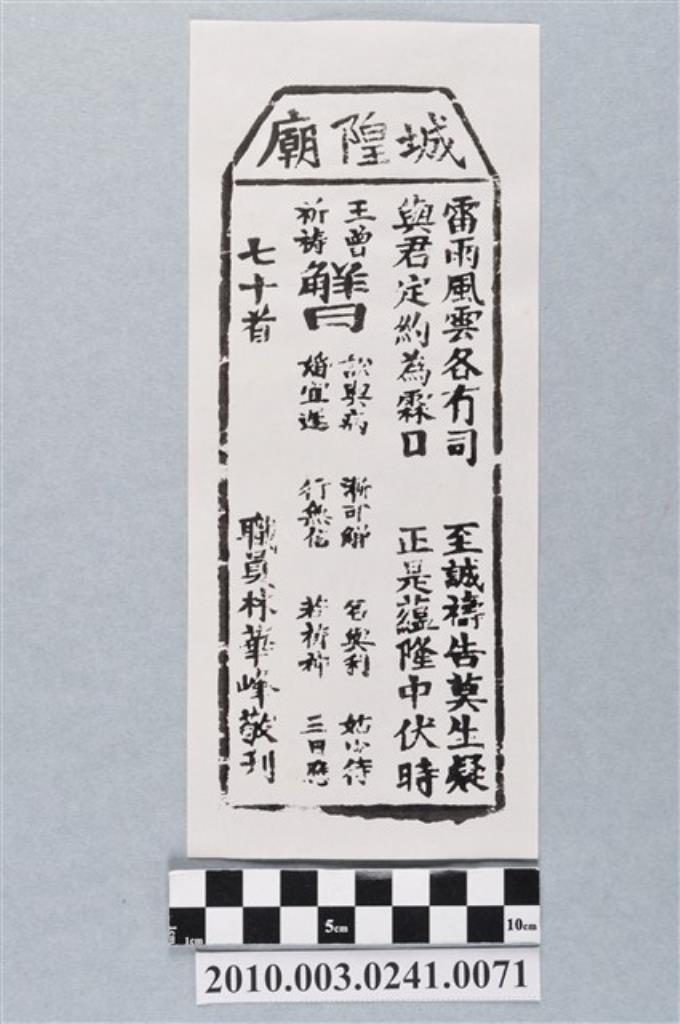 城隍廟
雷雨風雲各有司 至誠禱告莫生疑
與君定約為霖日 正是蘊隆中伏時
王曾
祈禱
解曰
訟與病 漸可解 名與利 姑少待
婚宜遲 行無信 若祈神 三日應
七十首 職員林華峰敬刊
1cm 5cm 10cm
2010.003.0241.0071